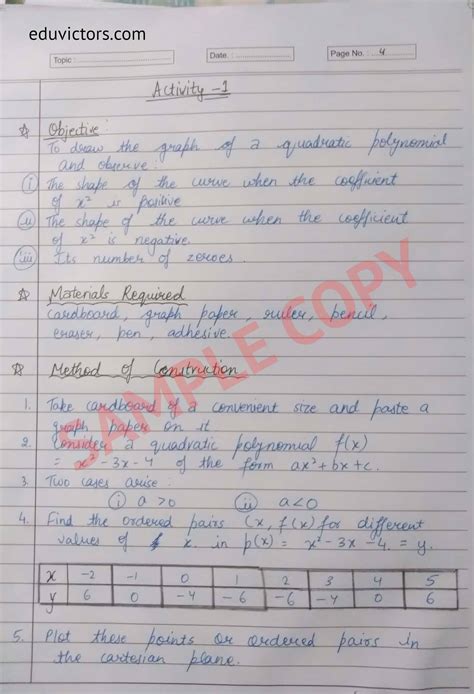 eduvictors.com
Topic : Date. : Page No. : 4
Activity - 1
☆ Objective
To draw the graph of a quadratic polynomial
and observe :
(i) The shape of the curve when the coefficient
of x² is positive
(ii) The shape of the curve when the coefficient
of x² is negative.
(iii) Its number of zeroes.
☆ Materials Required
Cardboard, graph paper, ruler, pencil,
eraser, pen, adhesive.
☆ Method of Construction
1. Take cardboard of a convenient size and paste a
graph paper on it
2. Consider a quadratic polynomial f(x)
= x² - 3x - 4 of the form ax² + bx + c.
3. Two cases arise :
(i) a > 0 (ii) a < 0
4. Find the ordered pairs (x, f(x) for different
values of x. in p(x) = x² - 3x - 4. = y.
x -2 -1 0 1 2 3 4 5
y 6 0 -4 -6 -6 -4 0 6
5. Plot these points or ordered pairs in
the cartesian plane.
SAMPLE COPY